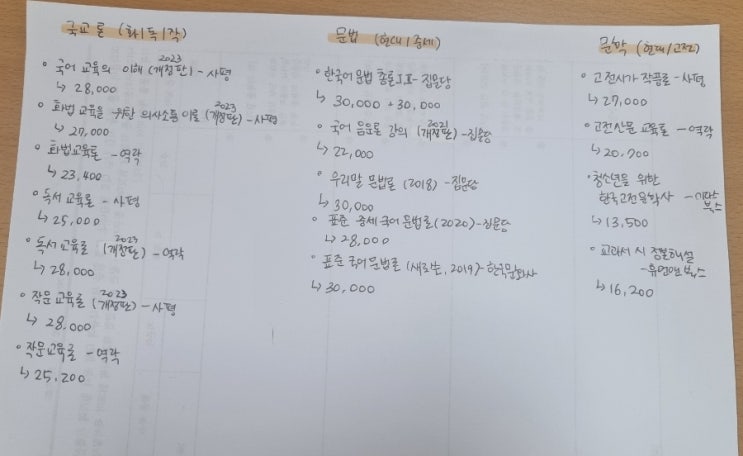 국교론 (화/독/작)
• 국어 교육의 이해 (개정판) 2023 - 사평
↳ 28,000
• 화법 교육을 위한 의사소통 이론 (개정판) 2023 - 사평
↳ 27,000
• 화법교육론 - 역락
↳ 23,400
• 독서 교육론 - 사평
↳ 25,000
• 독서 교육론 (개정판) 2023 - 역락
↳ 28,000
• 작문 교육론 (개정판) 2023 - 사평
↳ 28,000
• 작문교육론 - 역락
↳ 25,200
문법 (현대/중세)
• 한국어 문법 총론 I, II - 집문당
↳ 30,000 + 30,000
• 국어 음운론 강의 (개정판) 2021 - 집문당
↳ 22,000
• 우리말 문법론 (2018) - 집문당
↳ 30,000
• 표준 중세 국어 문법론 (2020) - 집문당
↳ 28,000
• 표준 국어 문법론 (새로쓴, 2019) - 한국문화사
↳ 30,000
문학 (현대/고전)
• 고전시가 작품론 - 사평
↳ 27,000
• 고전산문 교육론 - 역락
↳ 20,700
• 청소년을 위한
한국고전문학사 -
북스
↳ 13,500
• 교과서 시 정본해설
- 휴먼앤북스
↳ 16,200